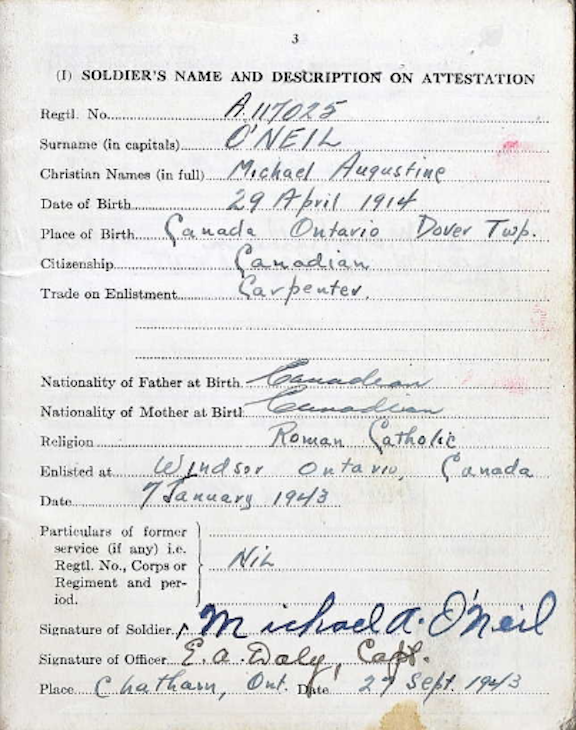 3
(I) SOLDIER'S NAME AND DESCRIPTION ON ATTESTATION
Regtl. No. A.117025
Surname (in capitals) O'NEIL
Christian Names (in full) Michael Augustine
Date of Birth 29 April 1914
Place of Birth Canada Ontario Dover Twp.
Citizenship Canadian
Trade on Enlistment Carpenter.
Nationality of Father at Birth Canadian
Nationality of Mother at Birth Canadian
Religion Roman Catholic
Enlisted at Windsor Ontario, Canada
Date 7 January 1943
Particulars of former
service (if any) i.e.
Regtl. No., Corps or Nil
Regiment and per-
iod.
Signature of Soldier Michael A. O'Neil
Signature of Officer E. A. Daly, Capt.
Place Chatham, Ont. Date 27 Sept. 1943